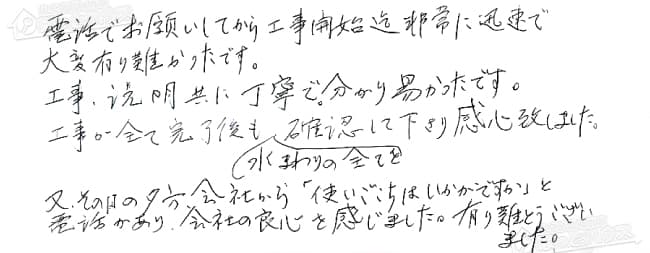 電話でお願いしてから工事開始迄非常に迅速で
大変有り難かったです。
工事、説明共に丁寧で。分かり易かったです。
工事が全て完了後も、確認して下さり感心致しました。
水まわりの全てを
又、その日の夕方会社から「使いごこちはいかがですか」と
電話があり、会社の良心を感じました。有り難とうござい
ました。